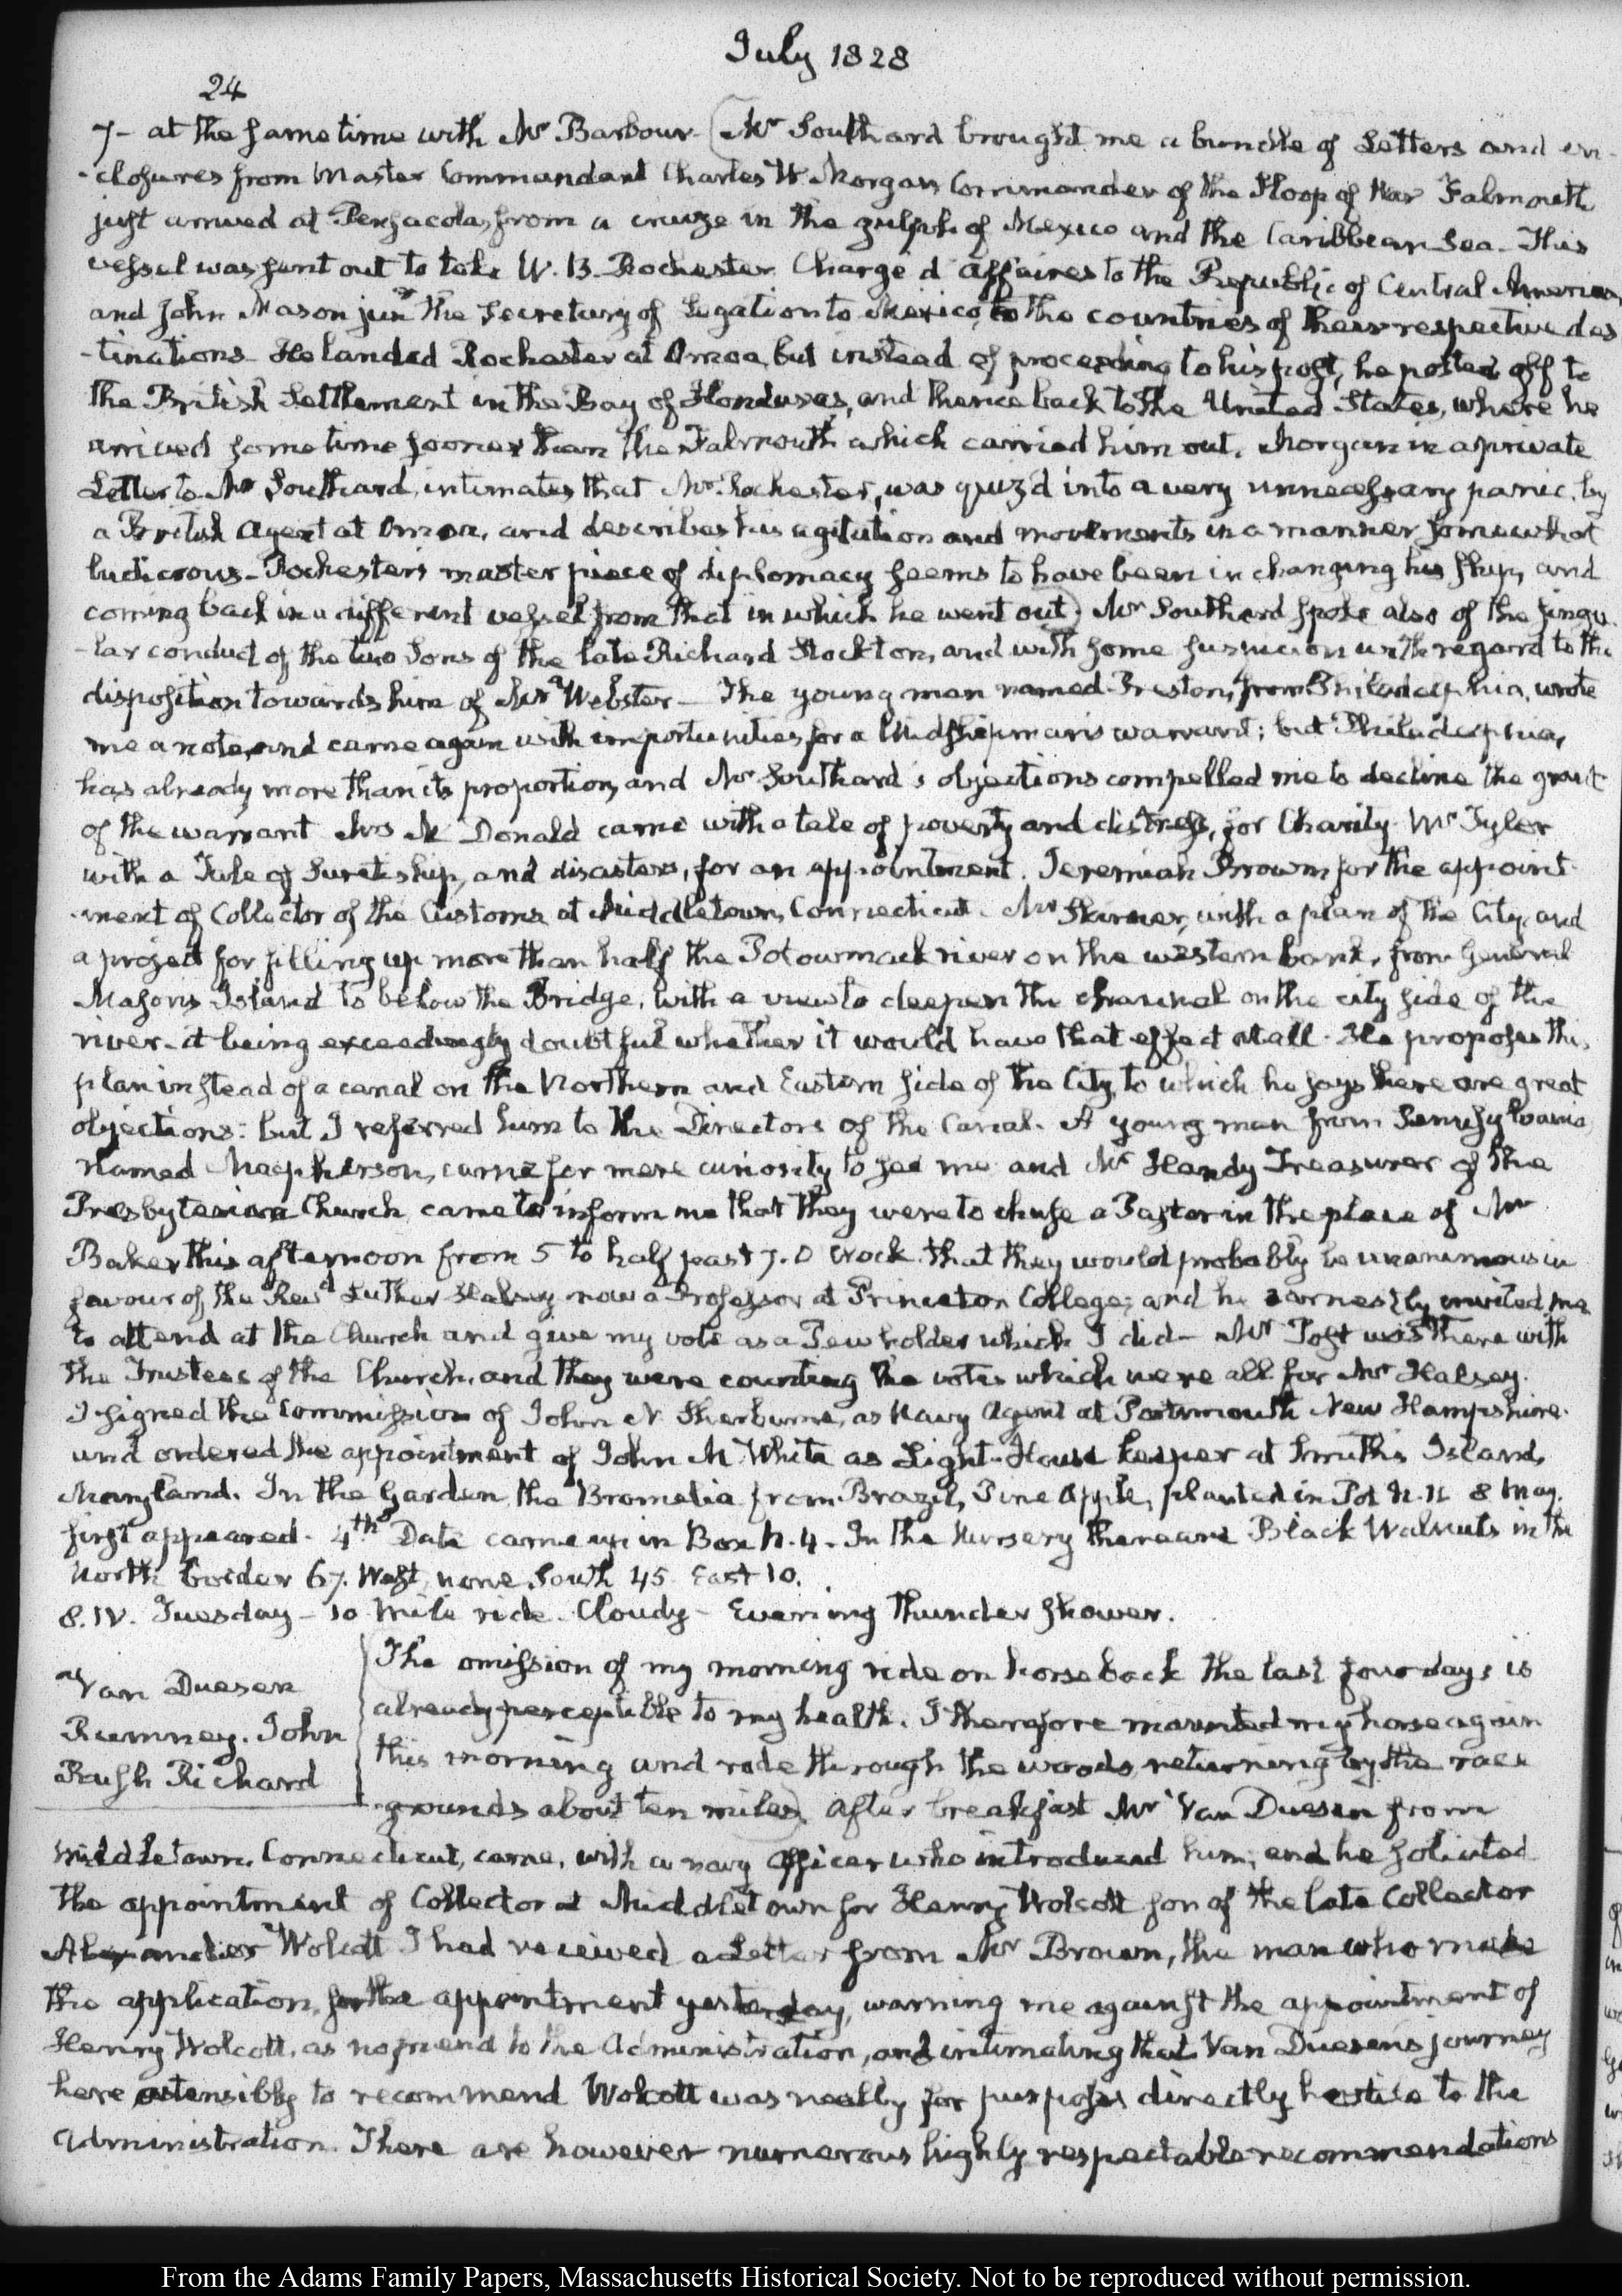 July 1828
24
7- at the same time with Mr Barbour- (Mr Southard brought me a bundle of Letters and en-
-closures from Master Commandant Charles W Morgan Commander of the Sloop of War Falmouth
just arrived at Pensacola, from a cruize in the gulph of Mexico and the Caribbean Sea- This
vessel was sent out to take W. B. Rochester Chargé d'Affaires to the Republic of Central America,
and John Mason junr the Secretary of Legation to Mexico, to the countries of their respective des
-tinations- He landed Rochester at Omoa, but instead of proceeding to his post, he posted off to
the British Settlement in the Bay of Honduras, and thence back to the United States, where he
arrived some time sooner than the Falmouth which carried him out. Morgan in a private
Letter to Mr Southard, intimates that Mr Rochester, was quiz'd into a very unnecessary panic, by
a British Agent at Omoa, and describes his agitation and movements in a manner somewhat
ludicrous- Rochester's master piece of diplomacy seems to have been in changing his ship, and
coming back in a different vessel from that in which he went out) Mr Southard spoke also of the singu
-lar conduct of the two Sons of the late Richard Stockton, and with some suspicion with regard to the
disposition towards him of Mr Webster- The young man named Preston, from Philadelphia, wrote
me a note, and came again with importunities for a Midshipman's warrant; but Philadelphia,
has already more than its proportion, and Mr Southard's objections compelled me to decline the grant
of the warrant Mrs Mc Donald came with a tale of poverty and distress, for Charity- Mr Tyler
with a Tale of Suretiship, and disasters, for an appointment. Jeremiah Brown for the appoint-
-ment of Collector of the Customs at Middletown, Connecticut. Mr Skinner, with a plan of the City, and
a project for filling up more than half the Potowmack river on the western bank, from General
Masons Island to below the Bridge, with a view to deepen the channel on the city side of the
river- it being exceedingly doubtful whether it would have that effect at all. He proposes this
plan instead of a canal on the Northern and Eastern side of the City, to which he says there are great
objections: but I referred him to the Directors of the Canal. A young man from Pennsylvania
named Macpherson, came for mere curiosity to see me and Mr Handy Treasurer of the
Presbyterian Church, came to inform me that they were to chuse a Pastor in the place of Mr
Baker this afternoon from 5 to half past 7. O'Clock. that they would probably be unanimous in
favour of the Revd Luther Halsey now a Professor at Princeton College; and he earnestly invited me
to attend at the Church and give my vote as a Pew holder which I did- Mr Post was there with
the Trustees of the Church, and they were counting the votes which were all for Mr Halsey.
I signed the Commission of John N. Sherburne, as Navy Agent at Portsmouth New Hampshire.
and ordered the appointment of John M White as Light-House keeper at Smith's Island,
Maryland. In the Garden the Bromelia from Brazil, Pine Apple, planted in Pot N. 11 8 May.
first appeared. 4th Date came up in Box N. 4. In the Nursery there are Black Walnuts in the
North border 67. West, none, South 45 East 10.
8. IV. Tuesday- 10 Mile ride. Cloudy- Evening thunder shower.
Van Duesen
Rumney. John
Rush Richard
The omission of my morning ride on horseback the last four days is
already perceptible to my health. I therefore mounted my horse again
this morning and rode through the woods, returning by the race
grounds about ten miles) After breakfast Mr Van Duesen from
Middletown, Connecticut, came, with a navy officer who introduced him; and he solicited
the appointment of Collector at Middletown for Henry Wolcott son of the late Collector
Alexander Wolcott I had received a Letter from Mr Brown, the man who made
the application, for the appointment yesterday, warning me against the appointment of
Henry Wolcott, as no friend to the Administration, and intimating that Van Duesen's journey
here ostensibly to recommend Wolcott was really for purposes directly hostile to the
Administration. There are however numerous highly respectable recommendations
From the Adams Family Papers, Massachusetts Historical Society. Not to be reproduced without permission.